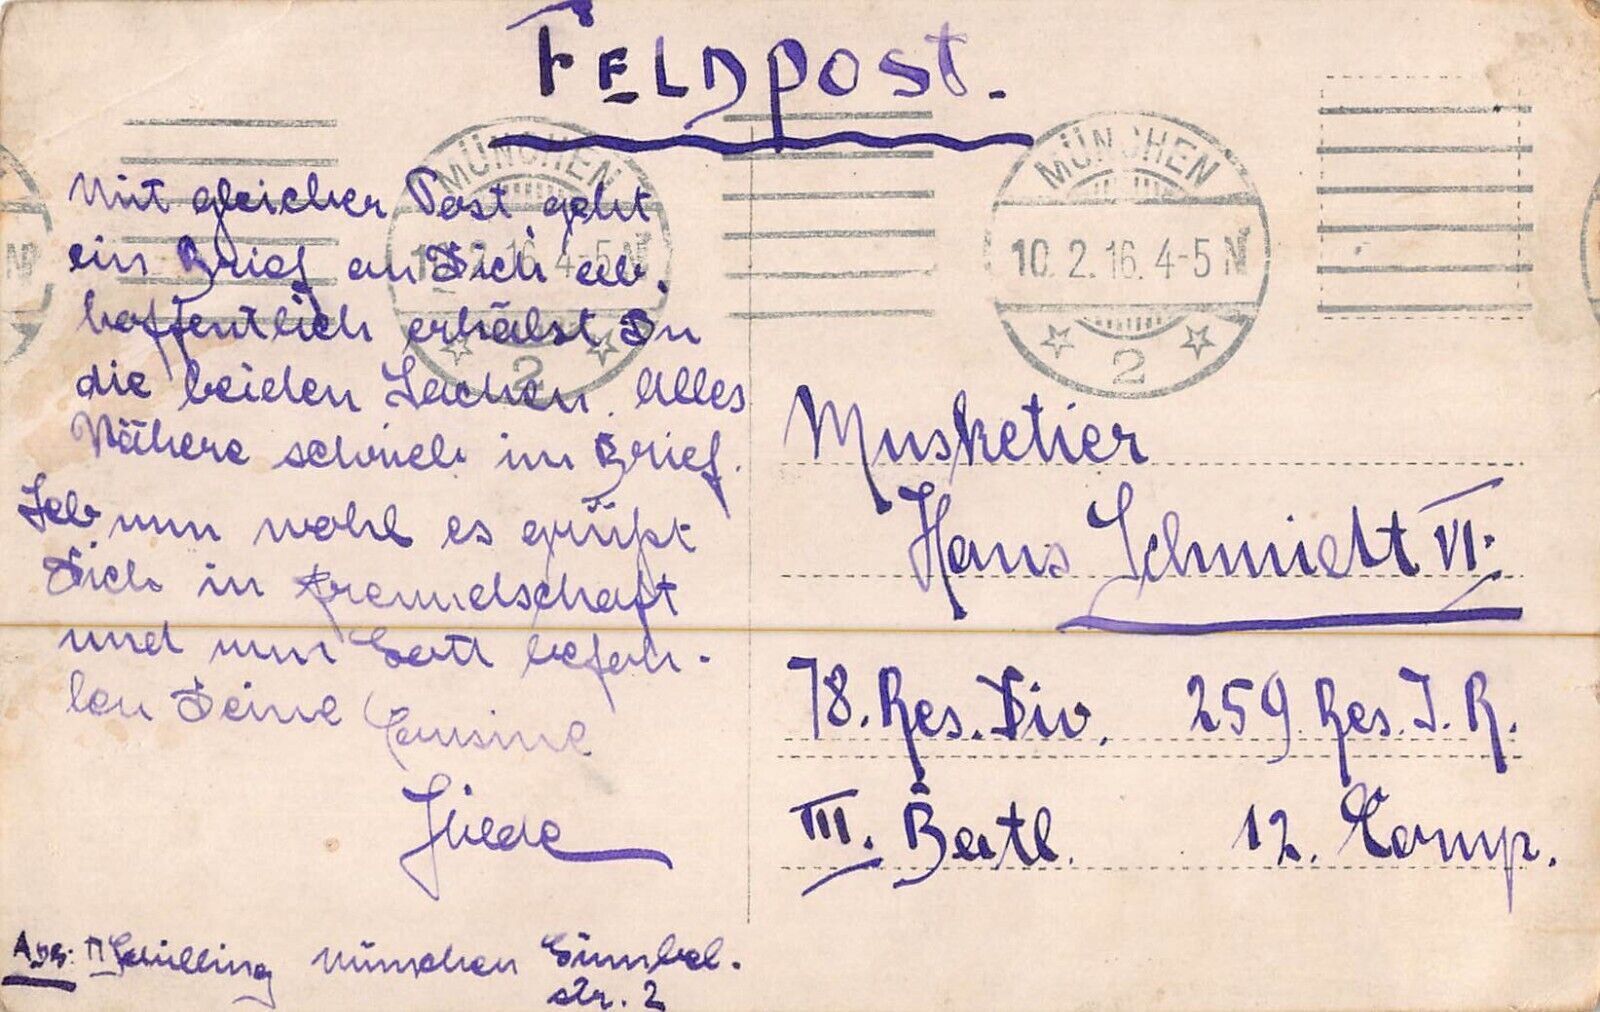 FELDpost.
MÜNCHEN
10.2.16.4-5 N
2
MÜNCHEN
10.2.16.4-5 N
2
Mit gleicher Post geht
ein Brief an Dich ab.
hoffentlich erhälst Du
die beiden Sachen. Alles
Nähere schrieb im Brief.
Leb nun wohl es grüßt
Dich in Freundschaft
und nun Gott befoh-
len Deine Cousine
Musketier
Hans Schmidt VI.
78. Res. Div. 259 Res. I. R.
III. Batl. 12. Comp.
Abs: Schilling München
str. 2